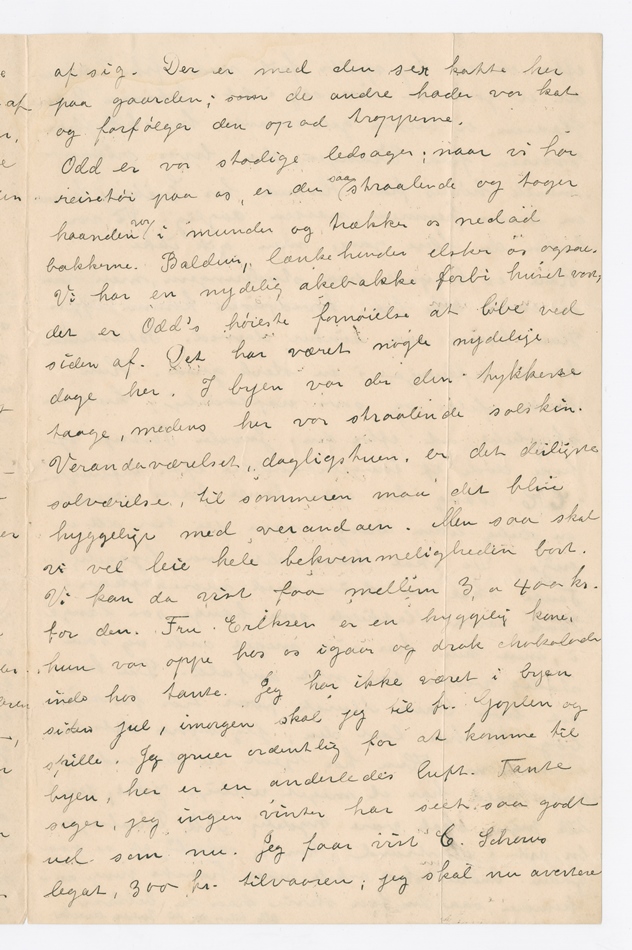 af sig. Der er med den sex katte her
paa gaarden; som de andre hader vor kat
og forfølger den opad trapperne.
Odd er vor stadige ledsager; naar vi har
reisetøi paa os, er den saa straalende og tager
haanden vor i munden og trækker os nedad
bakkerne. Baldur, lænkehunden elsker os ogsaa.
Vi har en nydelig akebakke forbi huset vort,
det er Odd's høieste fornøielse at løbe ved
siden af. Det har været nogle nydelige
dage her. I byen var der den tykkeste
taage, medens her var straalende solskin.
Verandaværelset, dagligstuen, er det deiligste
solværelse, til sommeren maa det blive
hyggeligt med verandaen. Men saa skal
vi vel leie hele bekvemmeligheden bort.
Vi kan da vist faa mellem 3 a 400 kr.
for den. Fru Eriksen er en hyggelig kone,
hun var oppe hos os igaar og drak chokolade
inde hos tante. Jeg har ikke været i byen
siden jul, imorgen skal jeg til fr. Goplen og
spille. Jeg gruer ordentlig for at komme til
byen, her er en anderledes luft. Tante
siger, jeg ingen vinter har seet saa godt
ud som nu. Jeg faar vist C. Schous
legat, 300 kr. tilvaaren; jeg skal nu avertere